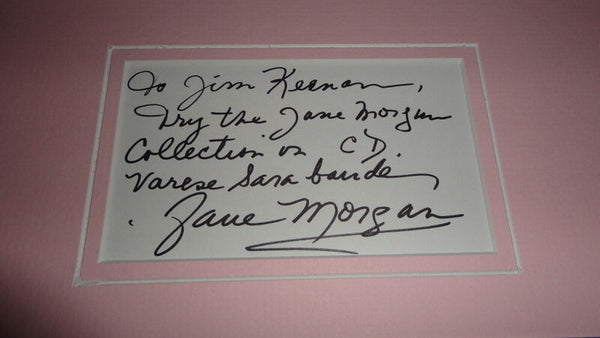 To Jim Keenan,
Try the Jane Morgan
Collection on CD.
Varese Sarabande,
Jane Morgan